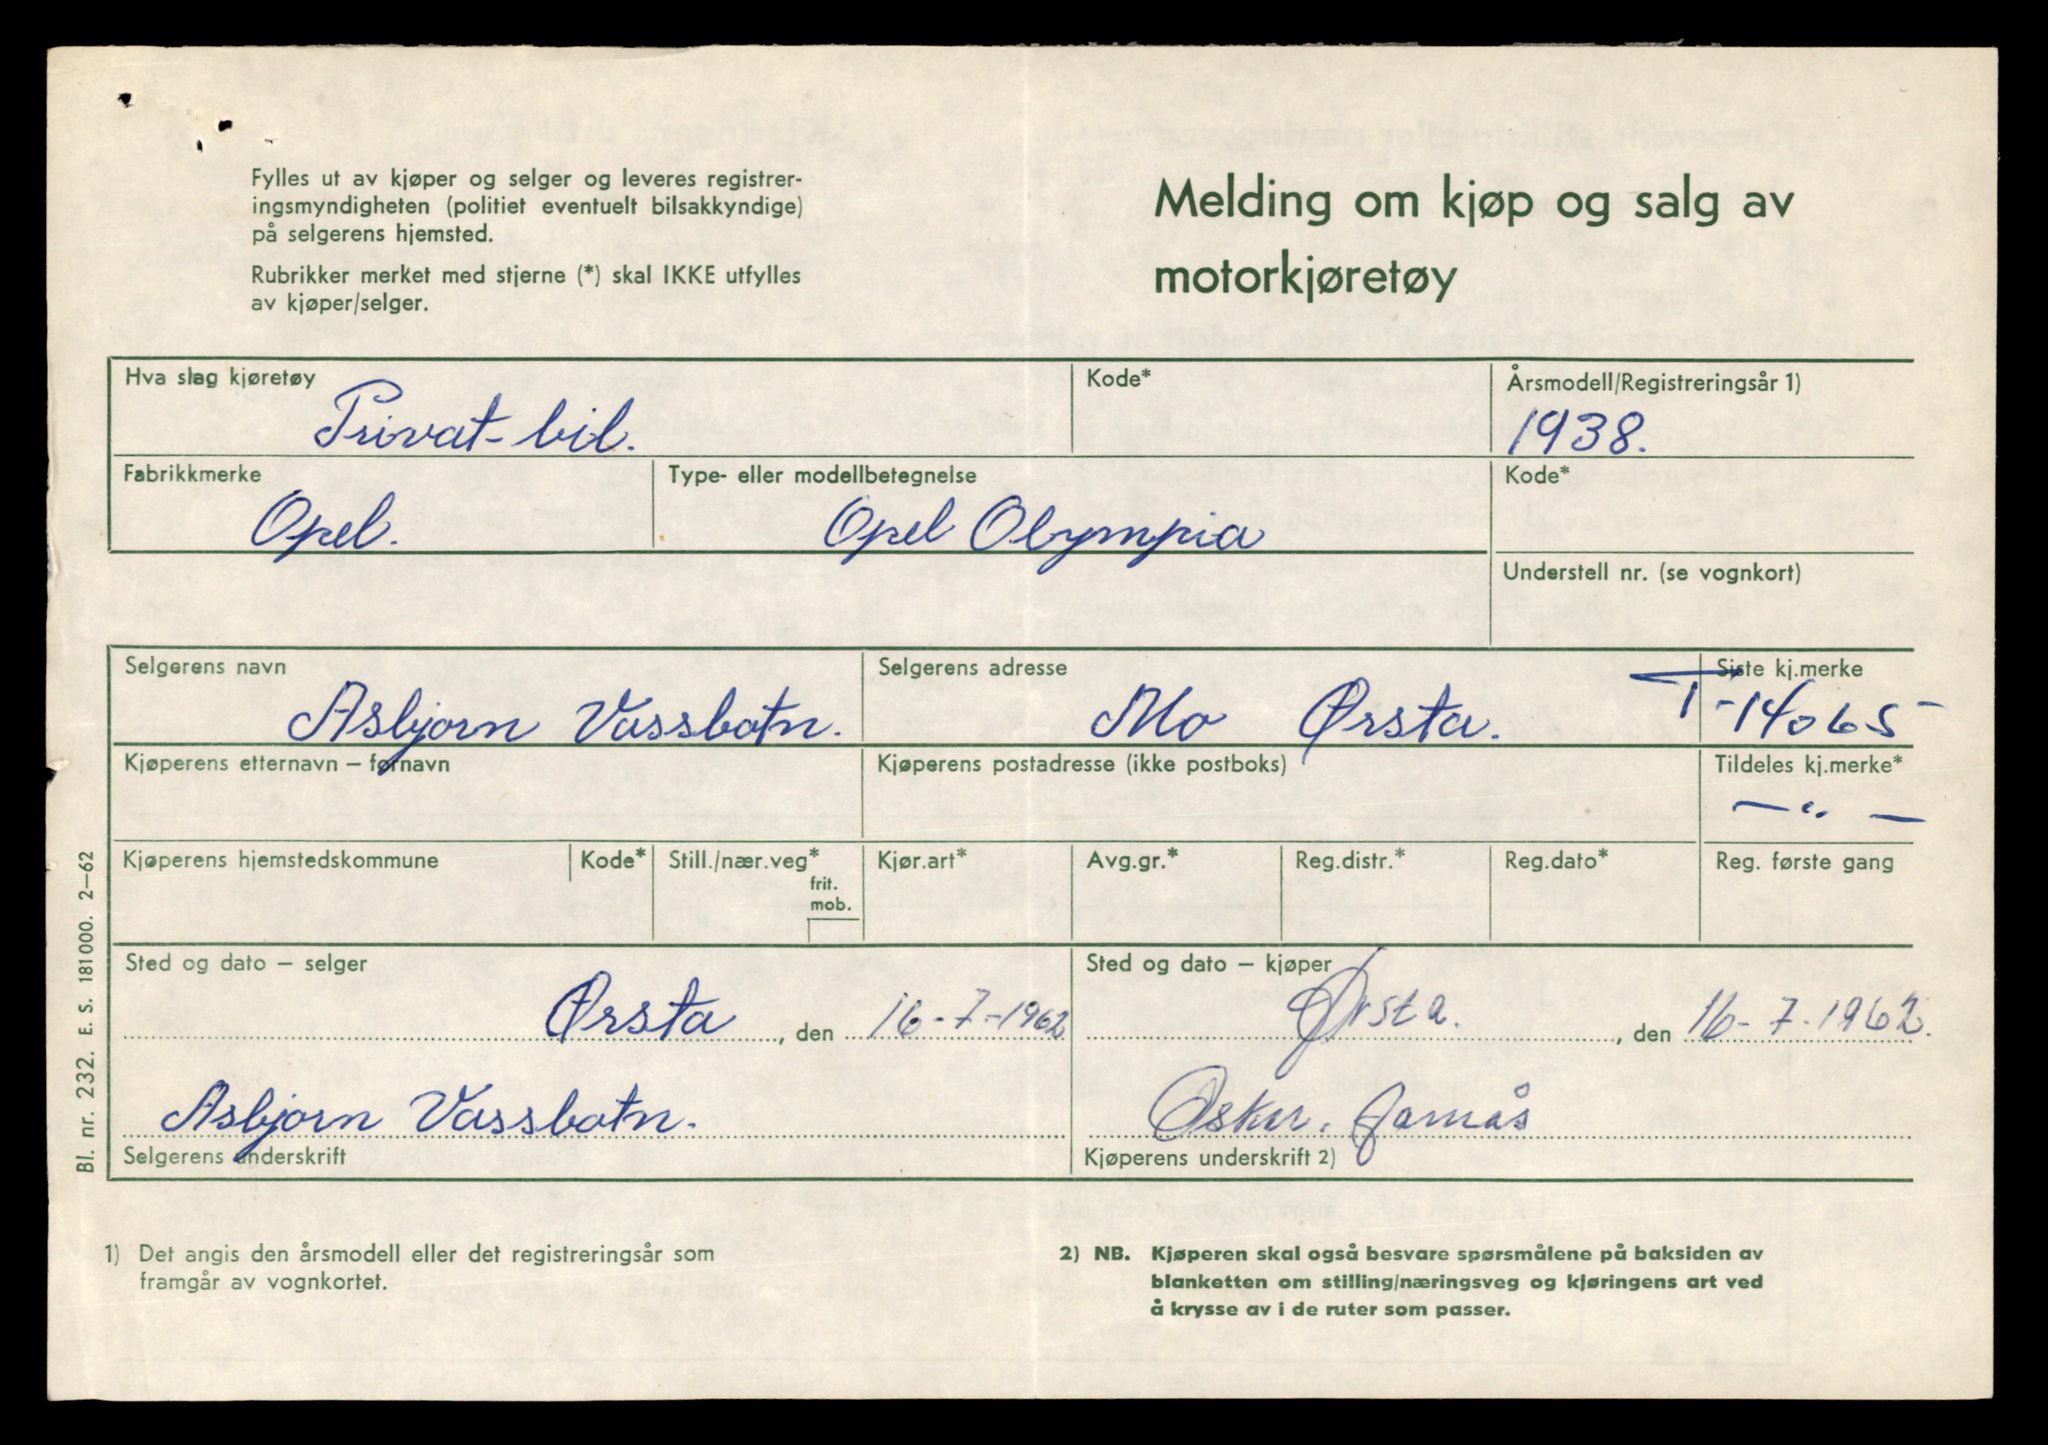 Fylles ut av kjøper og selger og leveres registrer-
ingsmyndigheten (politiet eventuelt bilsakkyndige)
på selgerens hjemsted.
Rubrikker merket med stjerne (*) skal IKKE utfylles
av kjøper/selger.
Melding om kjøp og salg av
motorkjøretøy
Hva slag kjøretøy
Privat-bil.
Kode*
Årsmodell/Registreringsår 1)
1938.
Fabrikkmerke
Opel.
Type- eller modellbetegnelse
Opel Olympia
Kode*
Understell nr. (se vognkort)
Selgerens navn
Asbjorn Vassbotn.
Selgerens adresse
Mo Ørsta.
Siste kj.merke
T-14065
Kjøperens etternavn – fornavn
Kjøperens postadresse (ikke postboks)
Tildeles kj.merke*
— " —
Kjøperens hjemstedskommune
Kode*
Still./nær.veg*
frit.
mob.
Kjør.art*
Avg.gr.*
Reg.distr.*
Reg.dato*
Reg. første gang
Sted og dato – selger
Ørsta, den 16-7-1962
Sted og dato – kjøper
Ørsta., den 16-7-1962.
Asbjorn Vassbotn.
Selgerens underskrift
Oskar.
Kjøperens underskrift 2)
Bl. nr. 232. E. S. 181000. 2–62
1) Det angis den årsmodell eller det registreringsår som
framgår av vognkortet.
2) NB. Kjøperen skal også besvare spørsmålene på baksiden av
blanketten om stilling/næringsveg og kjøringens art ved
å krysse av i de ruter som passer.